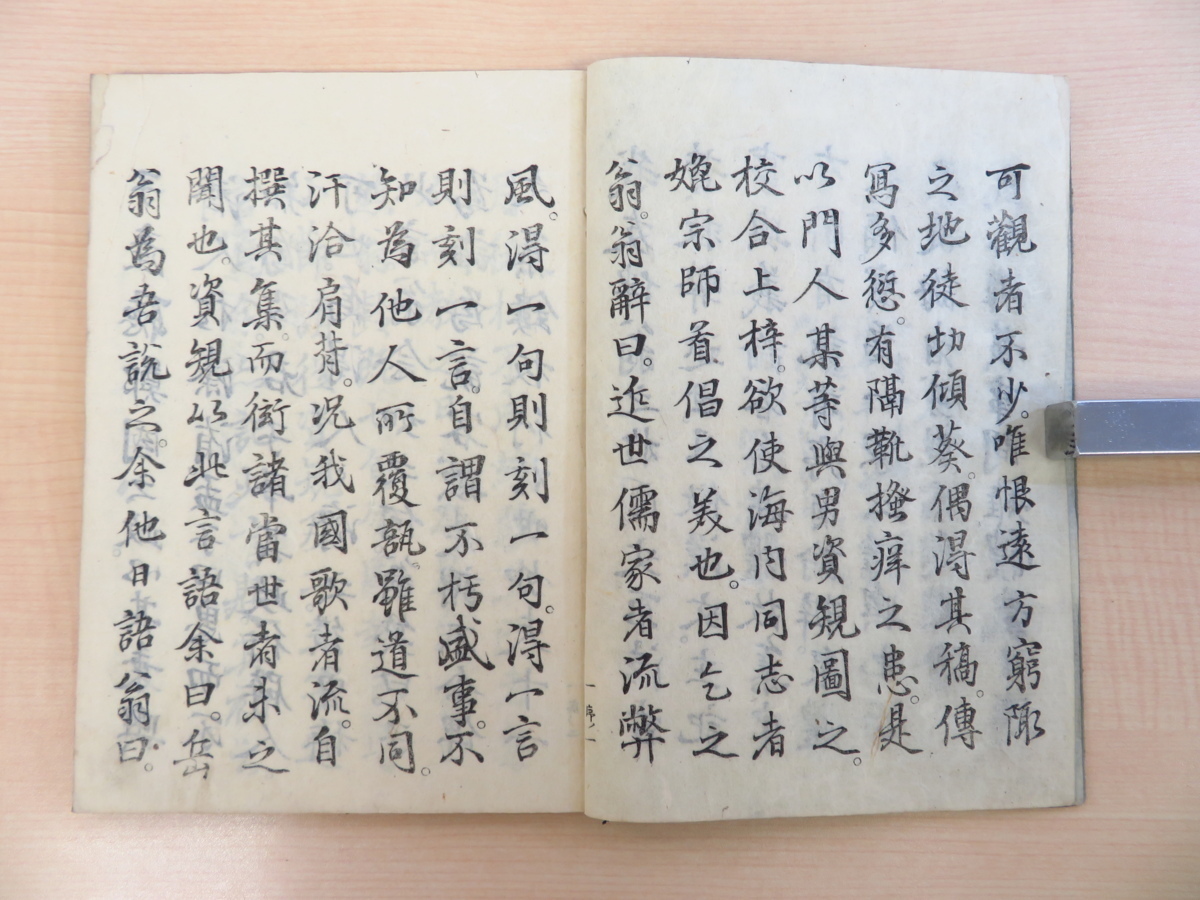 可觀者不少。唯恨遠方窮陬
之地徒切傾葵。偶淂其稿。傳
冩多愆。有隔靴搔痒之患。是
以門人某等與男資規圖之。
校合上梓。欲使海内同志者
娩宗師首倡之美也。因乞之
翁。翁辭曰。近世儒家者流弊
風。淂一句則刻一句。淂一言
則刻一言。自謂不朽盛事。不
知為他人所覆瓿。雖道不同。
汗洽肩背。况我國歌者流。自
撰其集。而衒諸當世者未之
聞也。資規以此言語余曰。岳
翁為吾説之。余他日語翁曰。
序